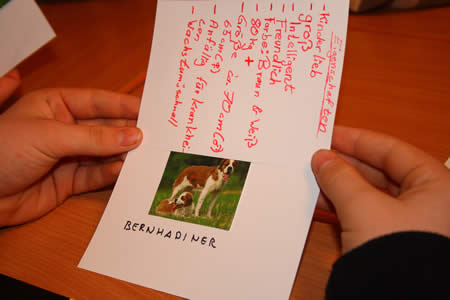 Eigenschaften
- Kinderlieb
- groß
- Intelligent
- Freundlich
- Farbe: Braun & Weiß
- 80 kg +
- Größe ca. 70 cm (♂)
65 cm (♀)
- Anfällig für Krankhei-
ten
- Wachstum: schnell
BERNHADINER